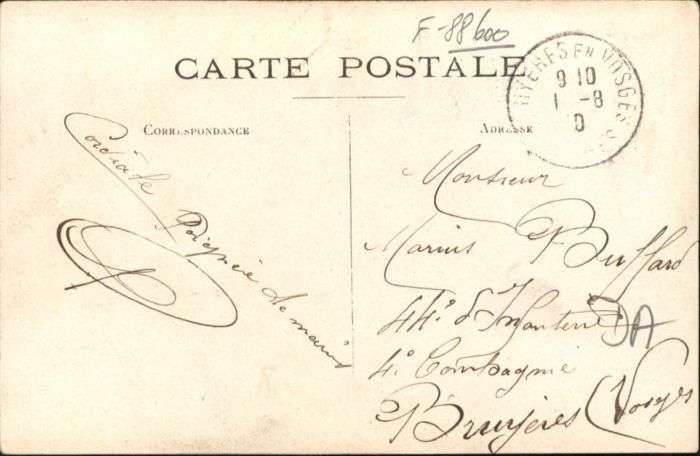 F-88600
CARTE POSTALE
CORRESPONDANCE
ADRESSE
UYÈRES EN VOSGES
9 10
1 -8
Cordiale
Poignée de main
Monsieur
Marius Buffard
44e d'Infanterie
DA
4e Compagnie
Bruyères (Vosges